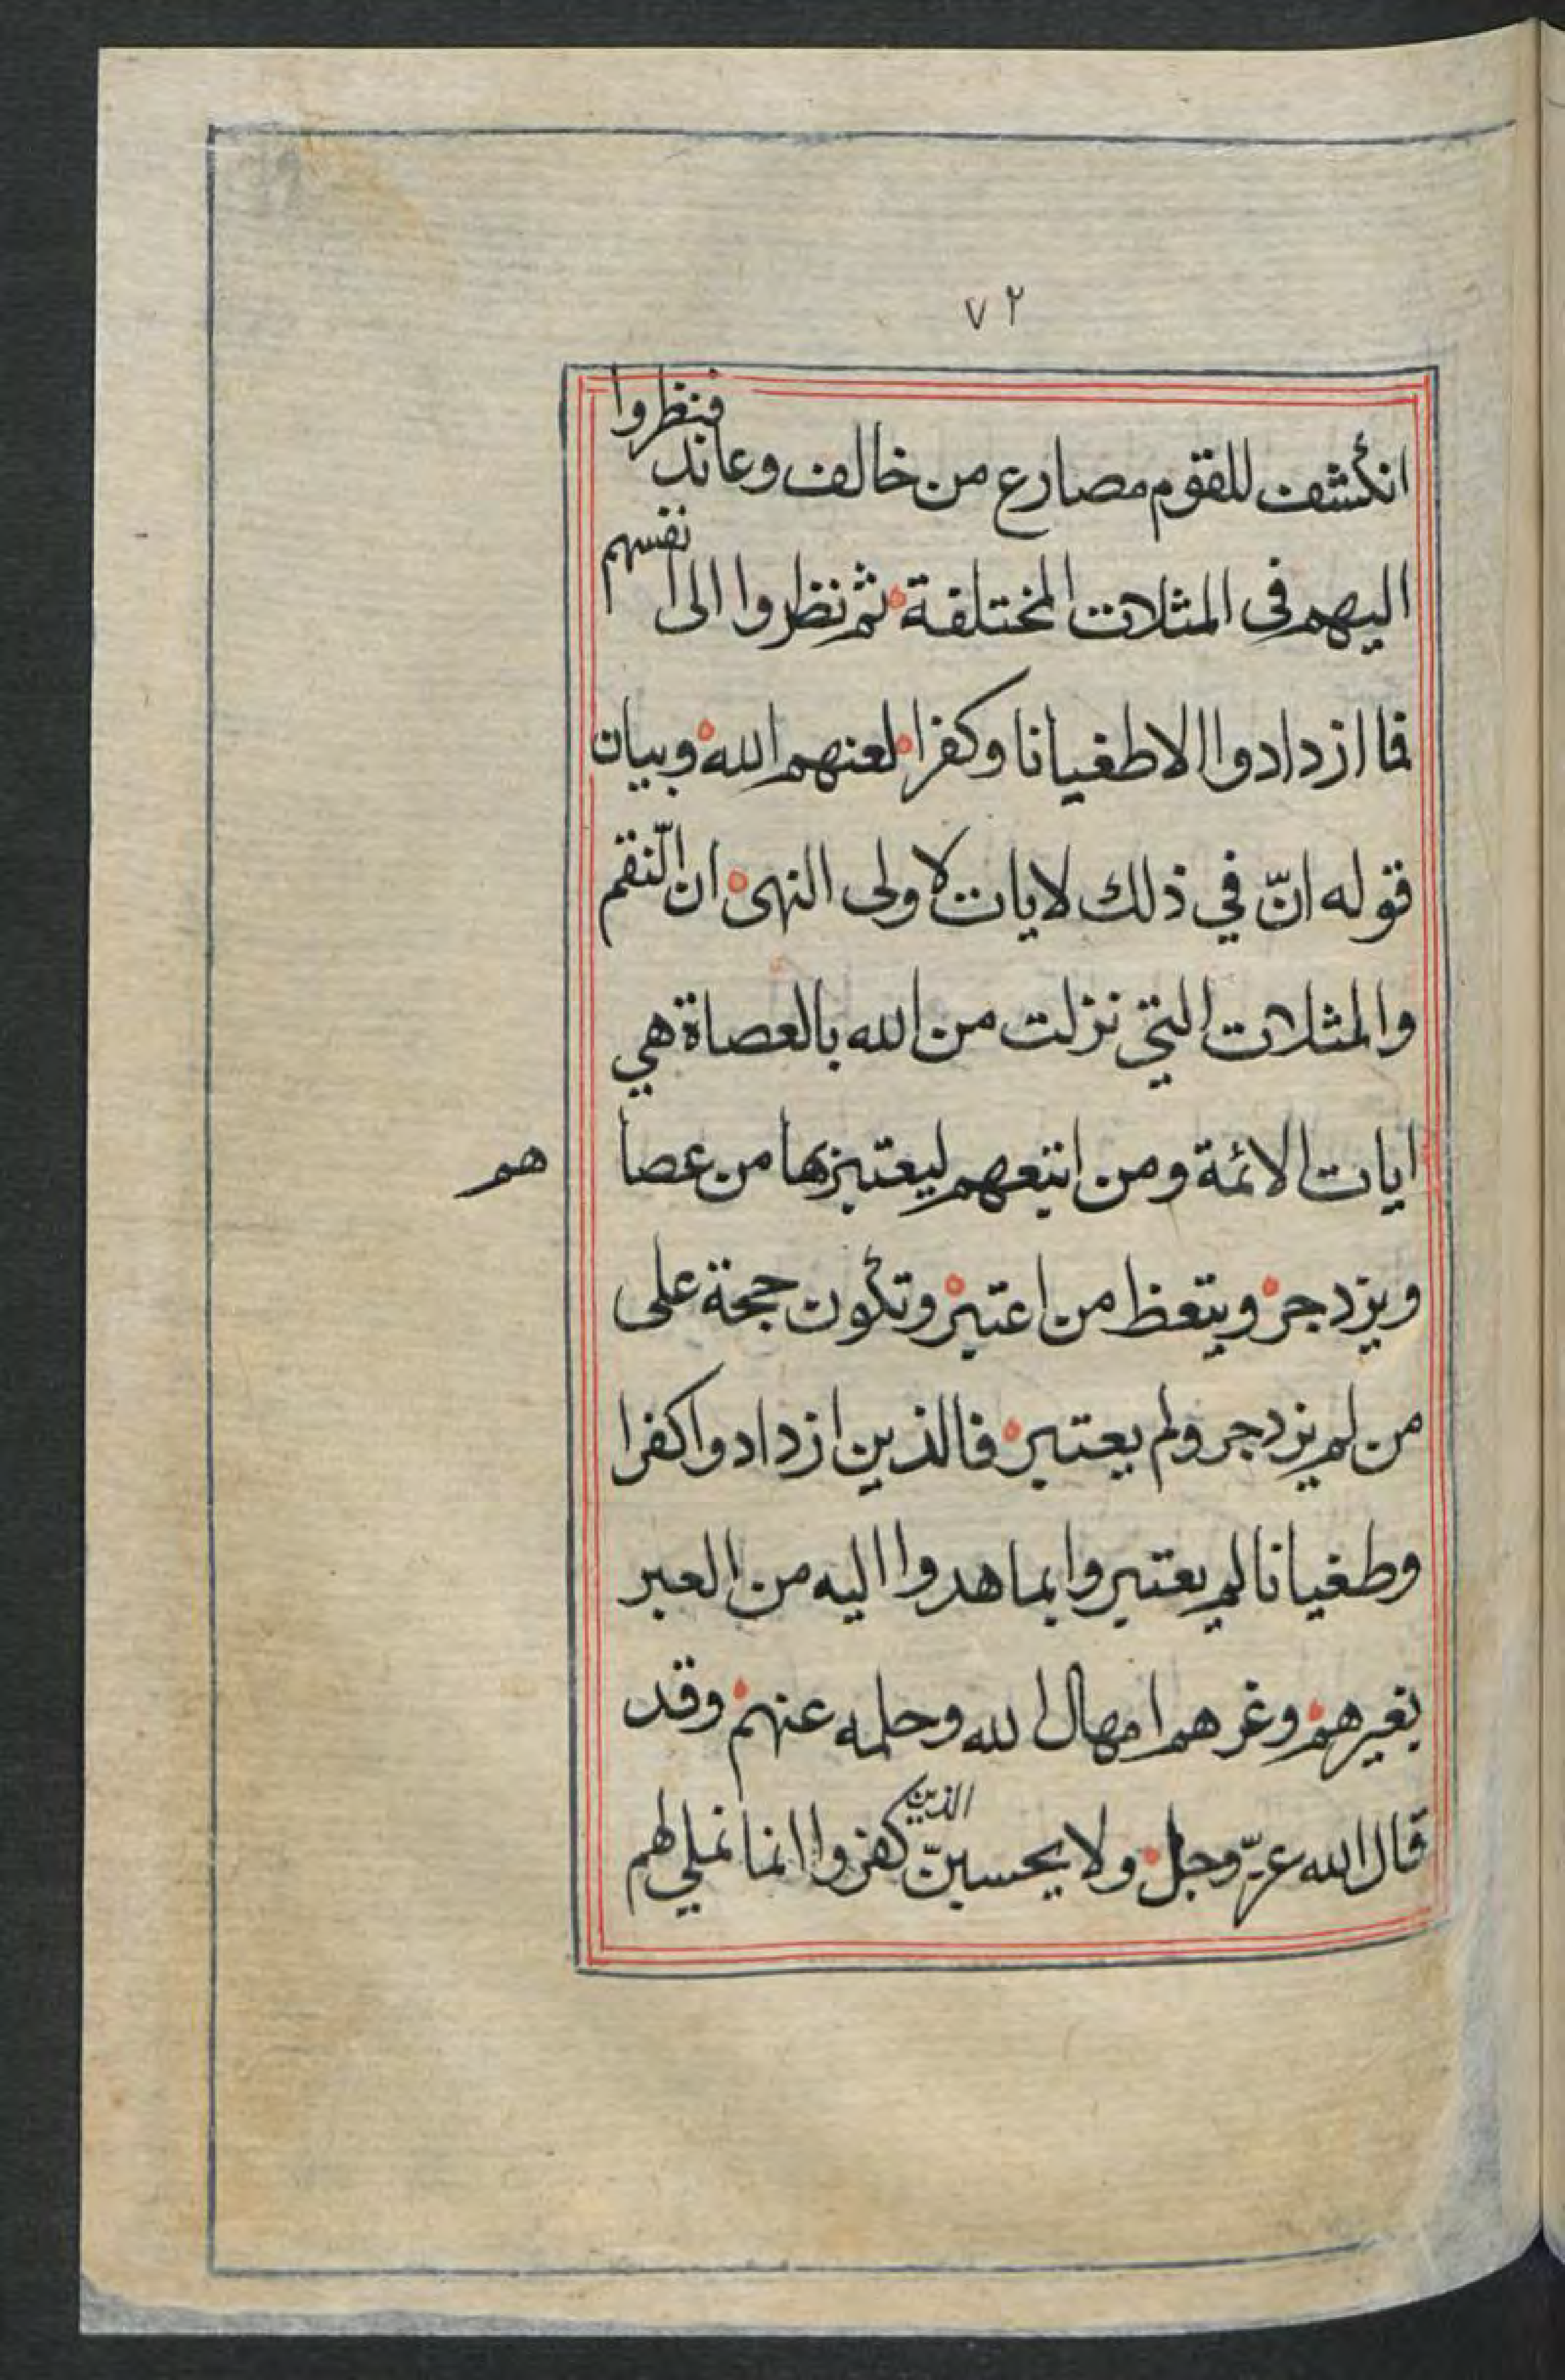 ٧٢
انكشف للقوم مصارع من خالف وعاند فنظروا
اليهم فى المثلات المختلفة ثم نظروا الى انفسهم
فما ازدادوا الا طغيانا وكفرا لعنهم الله وبيان
قوله انّ في ذلك لايات لاولى النهى ان النقم
والمثلات التي نزلت من الله بالعصاة هي
ايات الائمة ومن اتبعهم ليعتبر بها من عصاهم
ويزدجر ويتعظ من اعتبر وتكون حجة على
من لم يزدجر ولم يعتبر فالذين ازدادوا كفرا
وطغيانا لم يعتبروا بما هدوا اليه من العبر
بغيرهم وغرهم امهال الله وحلمه عنهم وقد
قال الله عزّ وجل ولا يحسبنّ الذين كفروا انما نملي لهم